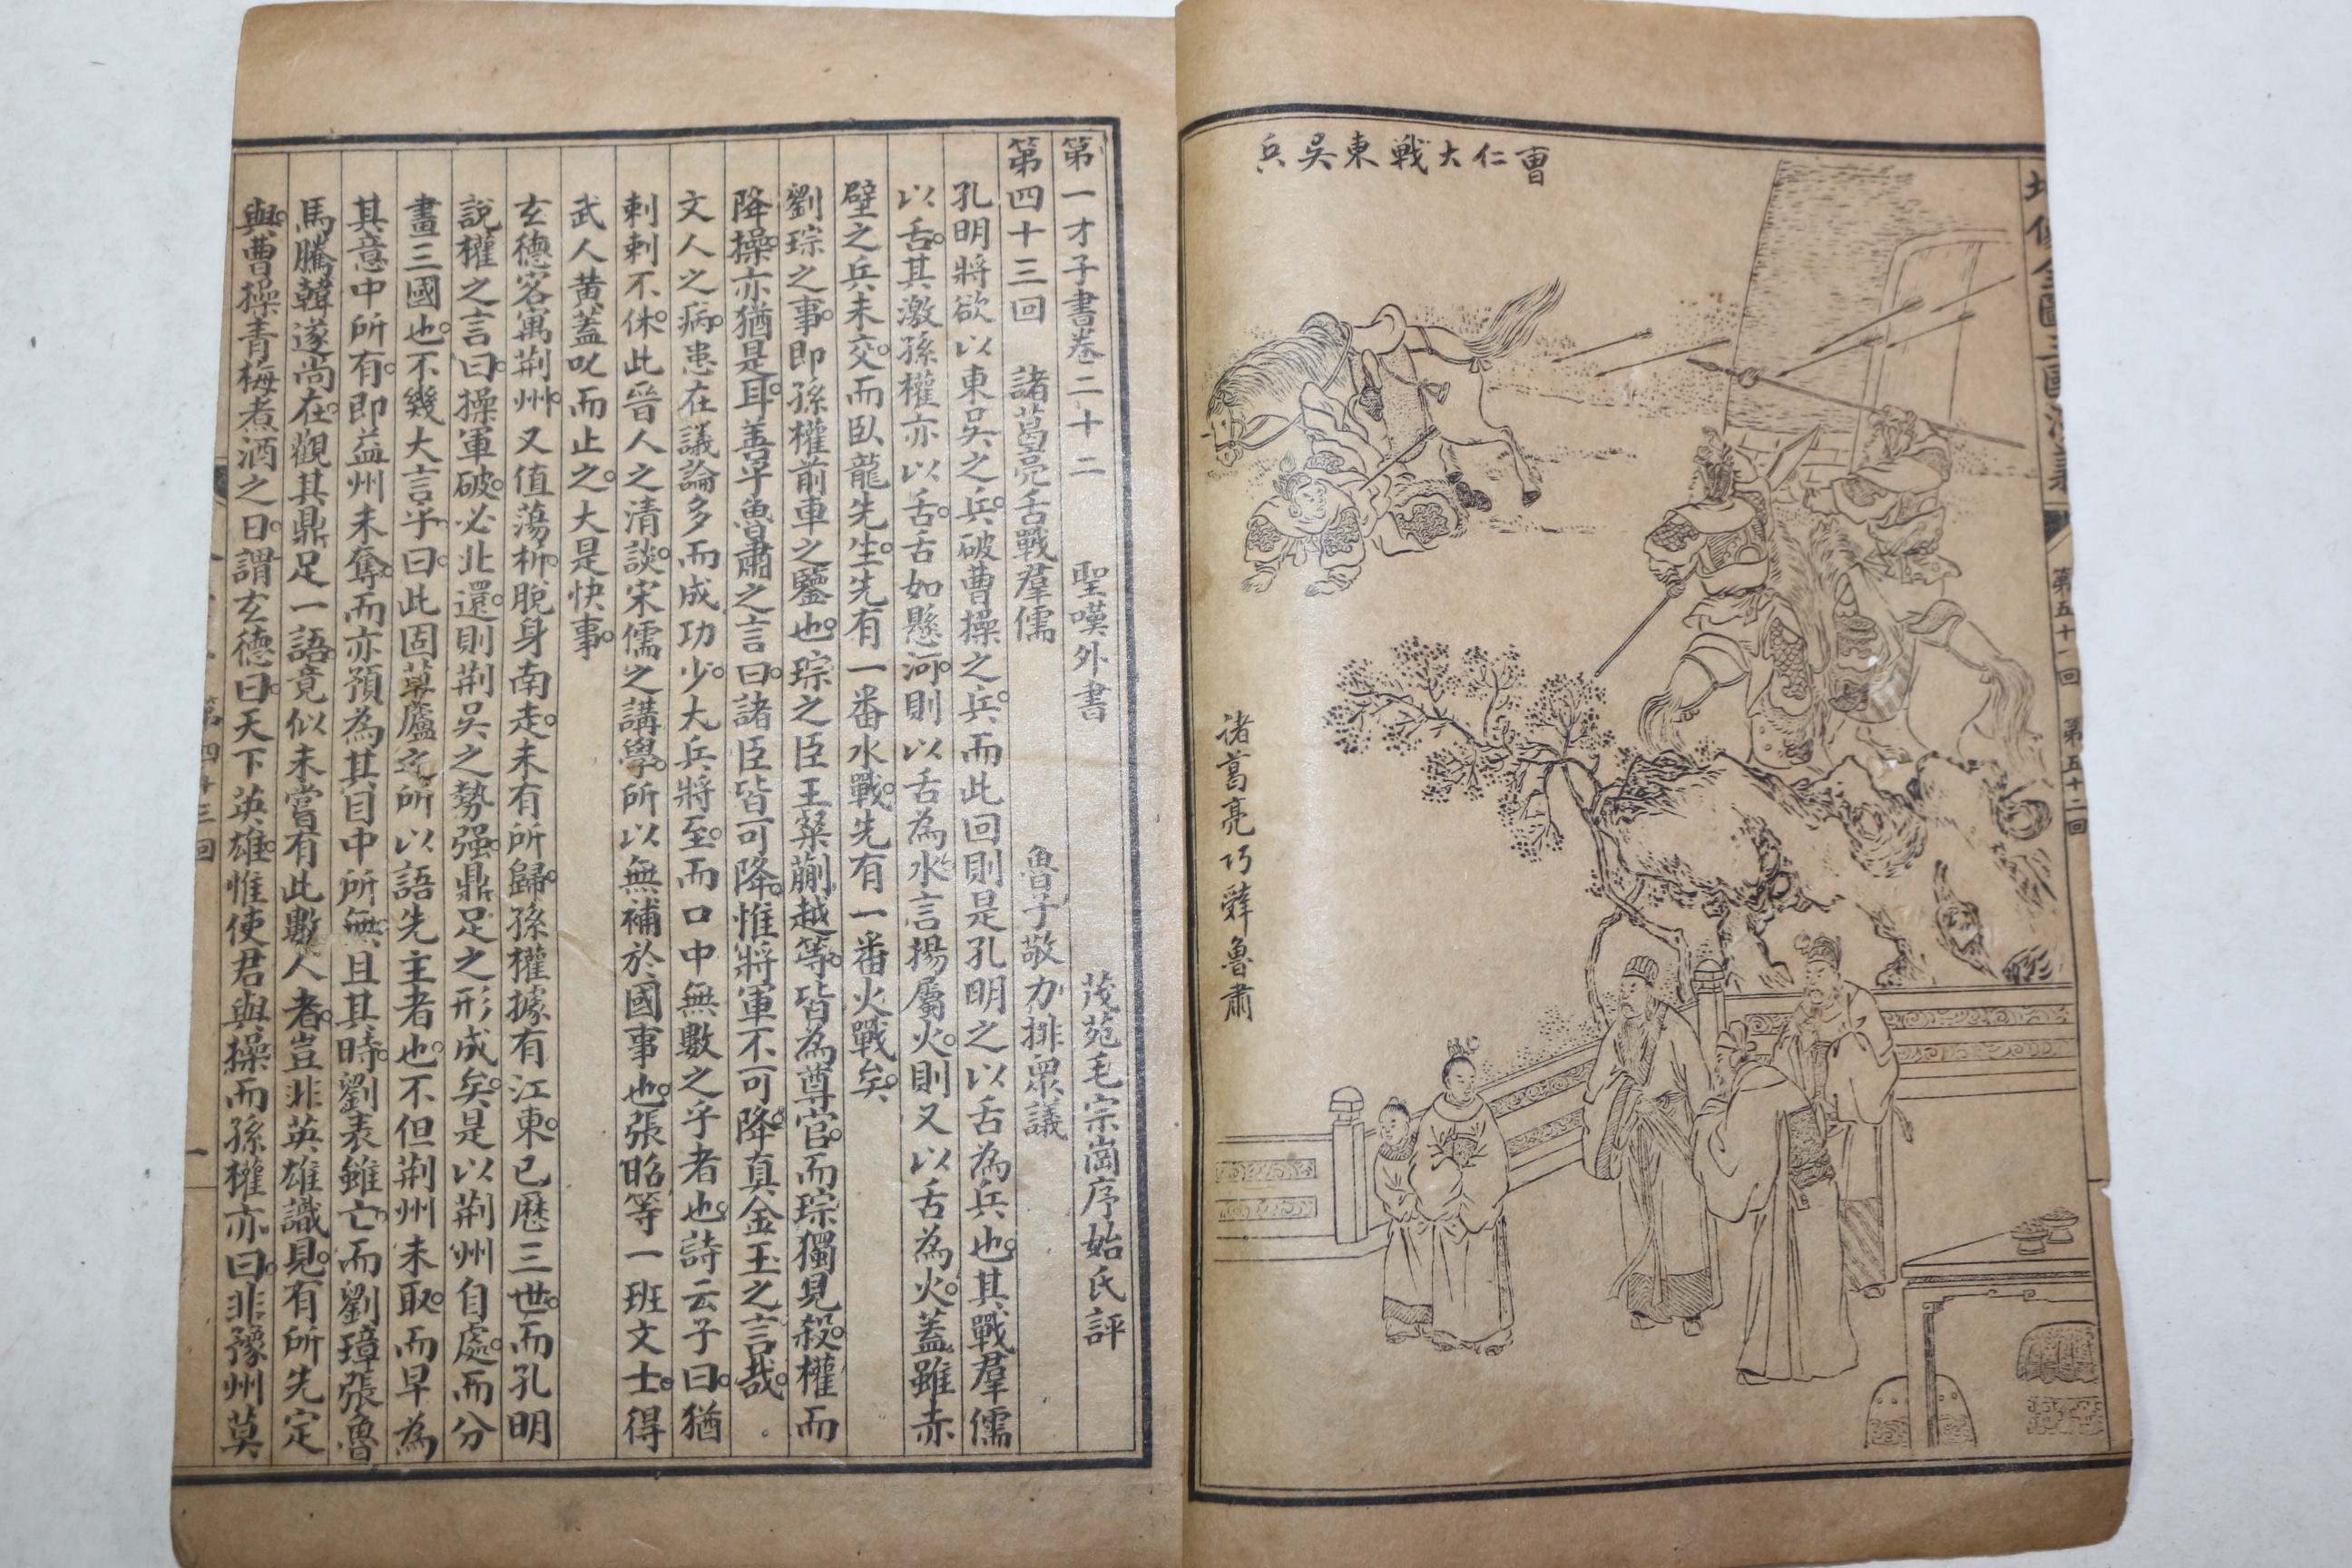 曹仁大戰東吳兵
諸葛亮巧辭魯肅
第五十一回 第五十二回
第一才子書卷二十二 聖嘆外書 茂苑毛宗崗序始氏評
第四十三回 諸葛亮舌戰羣儒 魯子敬力排眾議
孔明將欲以東吳之兵。破曹操之兵。而此回則是孔明之以舌為兵也。其戰羣儒
以舌。其激孫權亦以舌。舌如懸河。則以舌為水。言揚屬火。則又以舌為火。蓋雖赤
壁之兵未交。而臥龍先生。先有一番水戰。先有一番火戰矣。
劉琮之事。即孫權前車之鑒也。琮之臣王粲蒯越等。皆為尊官。而琮獨見殺。權而
降操。亦猶是耳。善乎魯肅之言曰。諸臣皆可降。惟將軍不可降。真金玉之言哉。
文人之病。患在議論多而成功少。大兵將至。而口中無數之乎者也。詩云子曰。猶
刺刺不休。此晉人之清談。宋儒之講學。所以無補於國事也。張昭等一班文士。得
武人黃蓋叱而止之。大是快事。
玄德客寓荊州。又值蕩析。脫身南走。未有所歸。孫權據有江東。已歷三世。而孔明
說權之言曰。操軍破。必北還。則荊吳之勢强。鼎足之形成矣。是以荊州自處。而分
畫三國也。不幾大言乎。曰。此固草廬之所以語先主者也。不但荊州未取。而早為
其意中所有。即益州未奪。而亦預為其目中所無。且其時。劉表雖亡。而劉璋張魯
馬騰韓遂尚在。觀其鼎足一語。竟似未嘗有此數人者。豈非英雄識見。有所先定
與。曹操青梅煮酒之日。謂玄德曰。天下英雄。惟使君與操。而孫權亦曰。非豫州莫
第四十三回
一